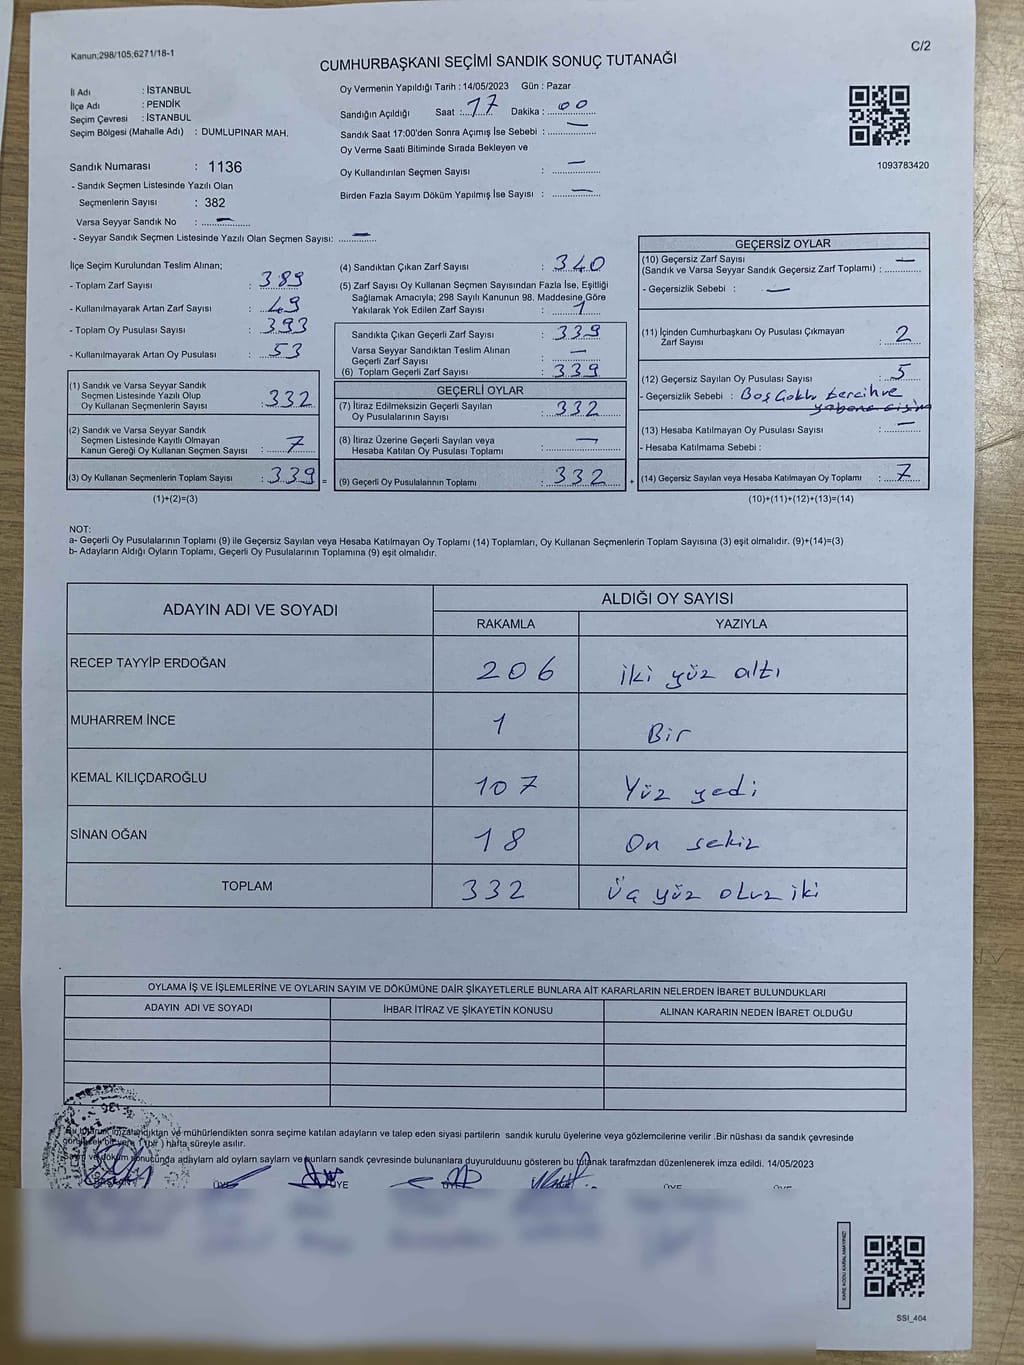 Kanun;298/105;6271/18-1
C/2
CUMHURBAŞKANI SEÇİMİ SANDIK SONUÇ TUTANAĞI
İl Adı : İSTANBUL
İlçe Adı : PENDİK
Seçim Çevresi : İSTANBUL
Seçim Bölgesi (Mahalle Adı) : DUMLUPINAR MAH.
Sandık Numarası : 1136
- Sandık Seçmen Listesinde Yazılı Olan
Seçmenlerin Sayısı : 382
Varsa Seyyar Sandık No : —
- Seyyar Sandık Seçmen Listesinde Yazılı Olan Seçmen Sayısı: —
Oy Vermenin Yapıldığı Tarih : 14/05/2023 Gün : Pazar
Sandığın Açıldığı Saat : 17 Dakika : 00
Sandık Saat 17:00'den Sonra Açımış İse Sebebi : —
Oy Verme Saati Bitiminde Sırada Bekleyen ve
Oy Kullandırılan Seçmen Sayısı : —
Birden Fazla Sayım Döküm Yapılmış İse Sayısı : —
1093783420
İlçe Seçim Kurulundan Teslim Alınan;
- Toplam Zarf Sayısı : 389
- Kullanılmayarak Artan Zarf Sayısı : 49
- Toplam Oy Pusulası Sayısı : 393
- Kullanılmayarak Artan Oy Pusulası : 53
(1) Sandık ve Varsa Seyyar Sandık
Seçmen Listesinde Yazılı Olup
Oy Kullanan Seçmenlerin Sayısı : 332
(2) Sandık ve Varsa Seyyar Sandık
Seçmen Listesinde Kayıtlı Olmayan
Kanun Gereği Oy Kullanan Seçmen Sayısı : 7
(3) Oy Kullanan Seçmenlerin Toplam Sayısı : 339 =
(1)+(2)=(3)
(4) Sandıktan Çıkan Zarf Sayısı : 340
(5) Zarf Sayısı Oy Kullanan Seçmen Sayısından Fazla İse, Eşitliği
Sağlamak Amacıyla; 298 Sayılı Kanunun 98. Maddesine Göre
Yakılarak Yok Edilen Zarf Sayısı : 1
Sandıkta Çıkan Geçerli Zarf Sayısı : 339
Varsa Seyyar Sandıktan Teslim Alınan
Geçerli Zarf Sayısı : —
(6) Toplam Geçerli Zarf Sayısı : 339
GEÇERLİ OYLAR
(7) İtiraz Edilmeksizin Geçerli Sayılan
Oy Pusulalarının Sayısı : 332
(8) İtiraz Üzerine Geçerli Sayılan veya
Hesaba Katılan Oy Pusulası Toplamı : —
(9) Geçerli Oy Pusulalarının Toplamı : 332 +
GEÇERSİZ OYLAR
(10) Geçersiz Zarf Sayısı
(Sandık ve Varsa Seyyar Sandık Geçersiz Zarf Toplamı) : —
- Geçersizlik Sebebi : —
(11) İçinden Cumhurbaşkanı Oy Pusulası Çıkmayan
Zarf Sayısı : 2
(12) Geçersiz Sayılan Oy Pusulası Sayısı : 5
- Geçersizlik Sebebi : Boş Çoklu tercih ve
(13) Hesaba Katılmayan Oy Pusulası Sayısı : —
- Hesaba Katılmama Sebebi :
(14) Geçersiz Sayılan veya Hesaba Katılmayan Oy Toplamı : 7
(10)+(11)+(12)+(13)=(14)
NOT:
a- Geçerli Oy Pusulalarının Toplamı (9) ile Geçersiz Sayılan veya Hesaba Katılmayan Oy Toplamı (14) Toplamları, Oy Kullanan Seçmenlerin Toplam Sayısına (3) eşit olmalıdır. (9)+(14)=(3)
b- Adayların Aldığı Oyların Toplamı, Geçerli Oy Pusulalarının Toplamına (9) eşit olmalıdır.
ADAYIN ADI VE SOYADI
ALDIĞI OY SAYISI
RAKAMLA YAZIYLA
RECEP TAYYİP ERDOĞAN 206 iki yüz altı
MUHARREM İNCE 1 Bir
KEMAL KILIÇDAROĞLU 107 Yüz yedi
SİNAN OĞAN 18 On sekiz
TOPLAM 332 Üç yüz otuz iki
OYLAMA İŞ VE İŞLEMLERİNE VE OYLARIN SAYIM VE DÖKÜMÜNE DAİR ŞİKAYETLERLE BUNLARA AİT KARARLARIN NELERDEN İBARET BULUNDUKLARI
ADAYIN ADI VE SOYADI İHBAR İTİRAZ VE ŞİKAYETİN KONUSU ALINAN KARARIN NEDEN İBARET OLDUĞU
mühürlendikten sonra seçime katılan adayların ve talep eden siyasi partilerin sandık kurulu üyelerine veya gözlemcilerine verilir .Bir nüshası da sandık çevresinde
hafta süreyle asılır.
sonucunda adayların ald oyların sayları ve bunların sandk çevresinde bulunanlara duyurulduunu gösteren bu tutanak tarafmzdan düzenlenerek imza edildi. 14/05/2023
ÜYE
KARE KODU KARALAMAYINIZ!
SSI_404